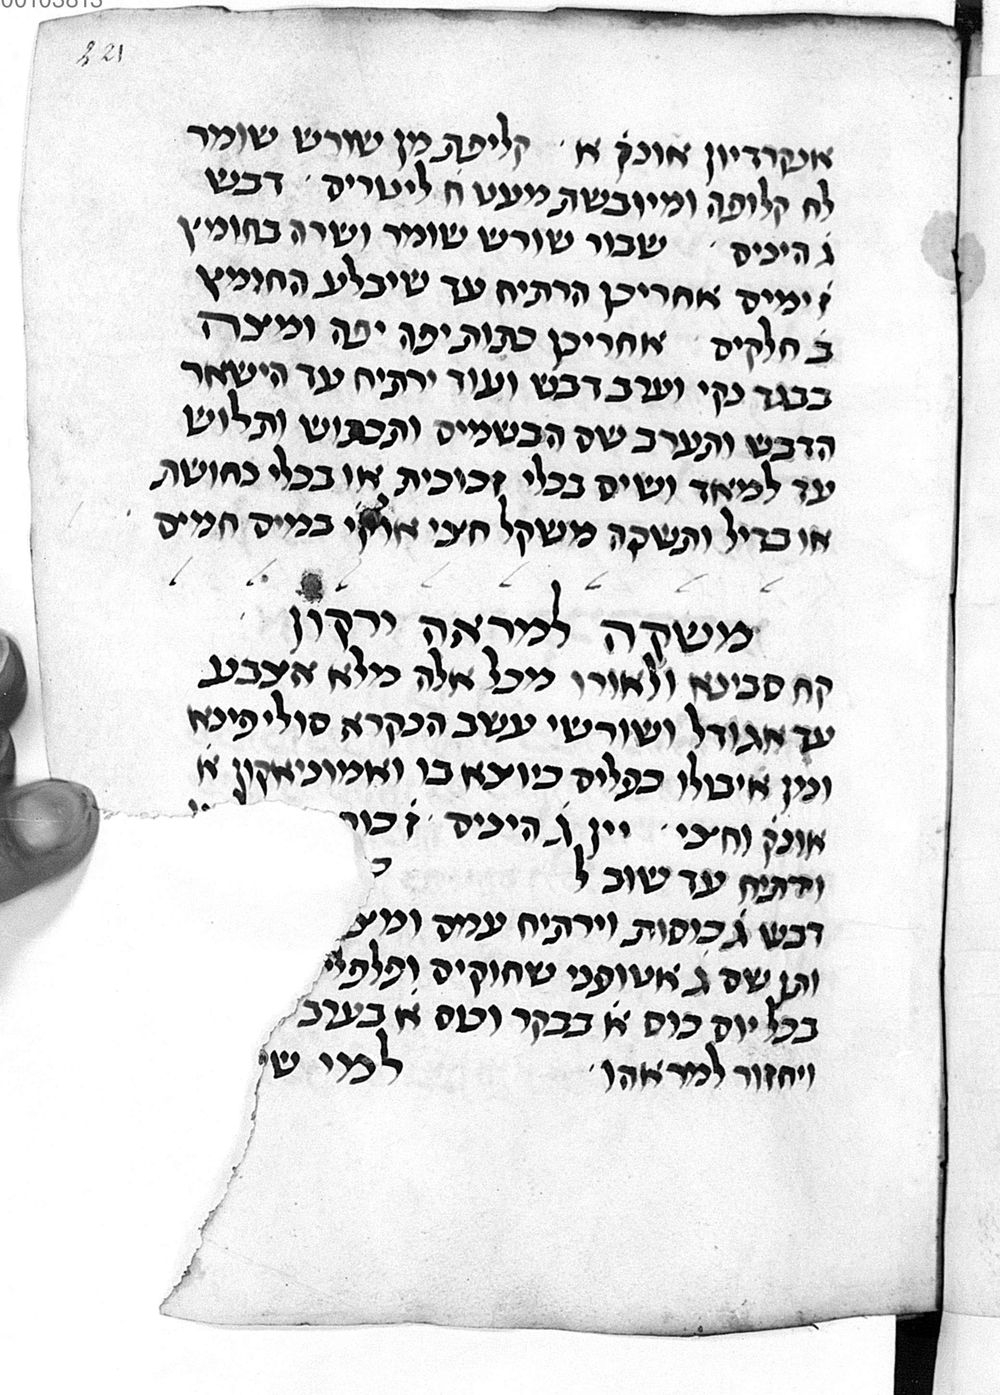 00103813
221
אנקרדיון אונק̇ א̇ קליפת מן שורש שומר
לח קלופה ומיובשת מעט ח̇ ליטריס דבש
ג̇ היכיס שבור שורש שומר ושרה בחומץ
ז̇ ימים אחריכן הרתיח עד שיבלע החומץ
ב̇ חלקים אחריכן כתות יפה יפה ומצה
בבגד נקי וערב דבש ועוד ירתיח עד הישאר
הדבש ותערב שם הבשמים ותכבוש ותלוש
עד למאד ושים בכלי זכוכית או בכלי נחושת
או בדיל והשקה משקל חצי במים חמים
משקה למראה ירקון
קח סבינא ולאורו מכל אלה מלא אצבע
עד אגודל ושורשי עשב הנקרא
ומן איבולו כפלים כיוצא בו ואמוניאקון א̇
אונק̇ וחצי יין ג̇ היכיס ז̇
וירתיח עד שוב ל
דבש ג̇ כוסות וירתיח עמה
ותן שם ג̇ שחוקים
בכל יום כוס א̇ בבקר וכוס א̇ בערב
ויחזור למראהו למי